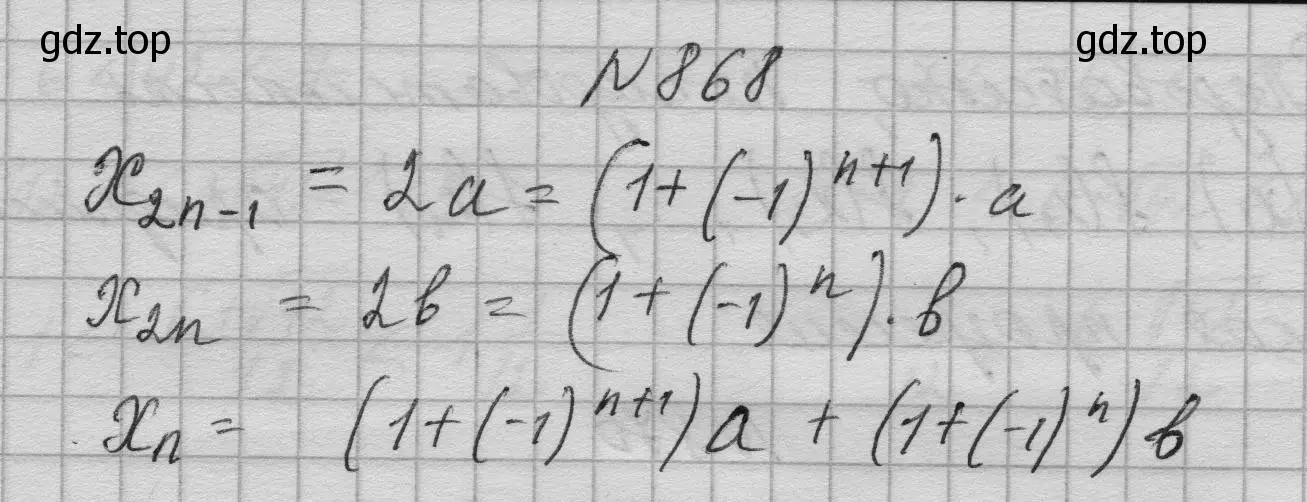 gdz.top gdz.top
N 868
x₂ₙ₋₁ = 2a = (1+(-1)ⁿ⁺¹)·a
x₂ₙ = 2b = (1+(-1)ⁿ)·b
xₙ = (1+(-1)ⁿ⁺¹)a + (1+(-1)ⁿ)b